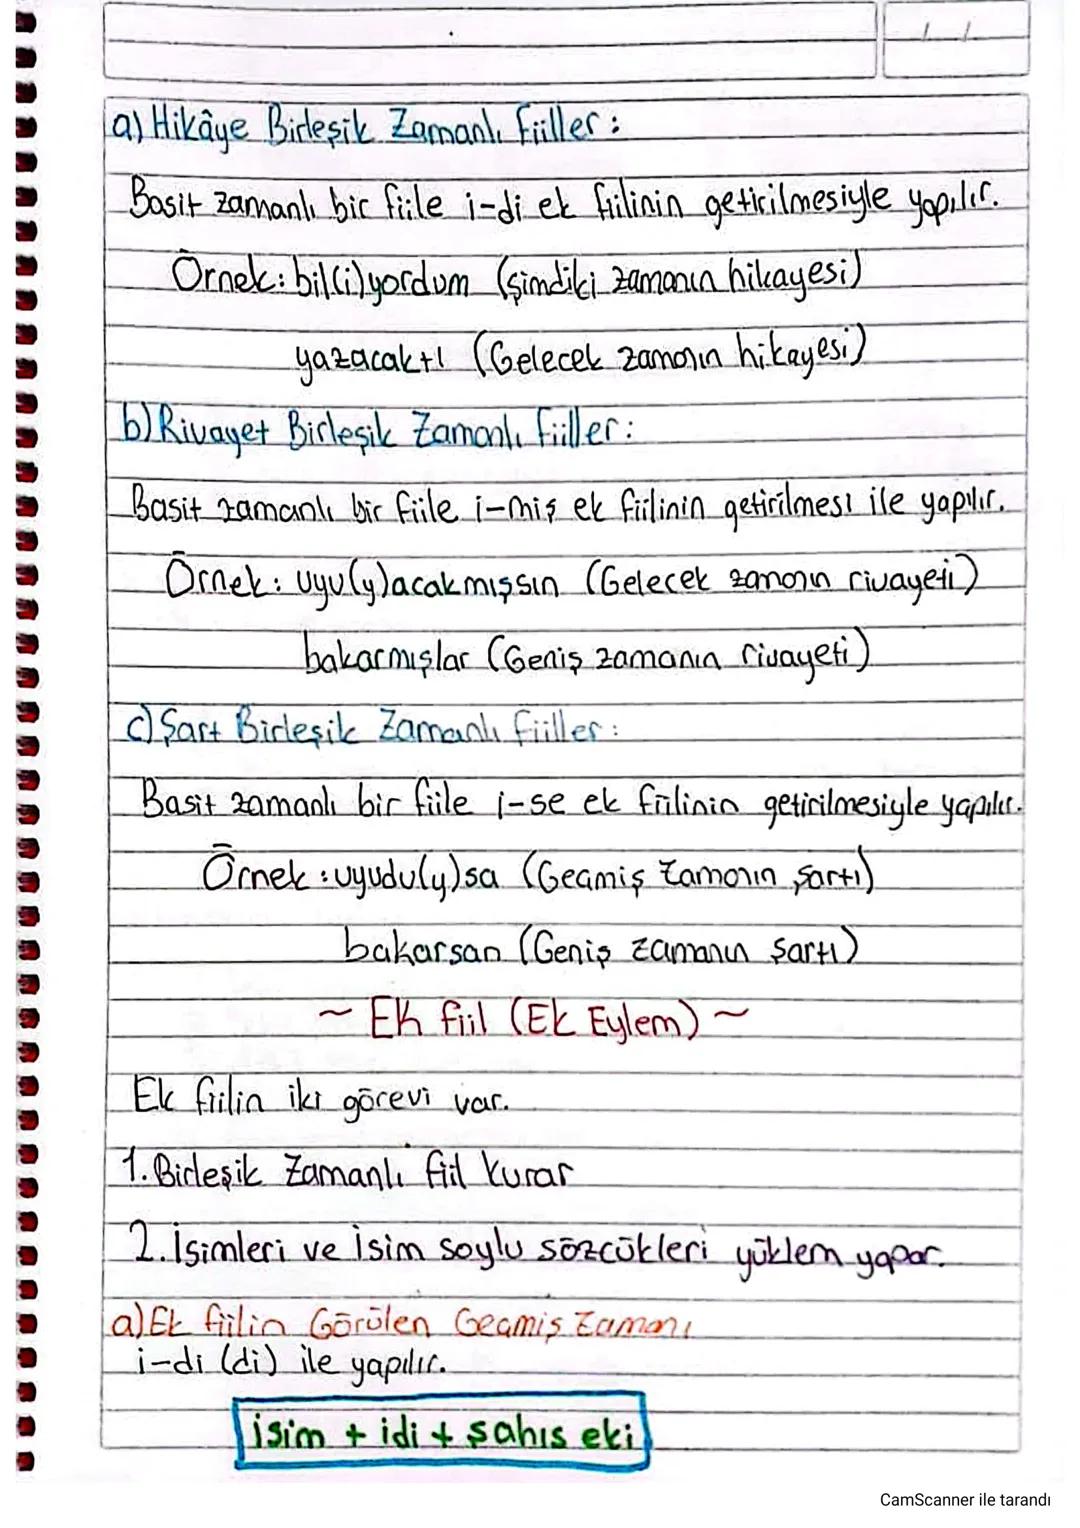 a) Hikâye Birleşik Zamanlı Fiiller:
Basit zamanlı bir fiile i-di ek fiilinin getirilmesiyle yapılır.
Örnek: bil(i)yordum (şimdiki zamanın hikayesi)
yazacaktı (Gelecek zamanın hikayesi)
b) Rivayet Birleşik Zamanlı Fiiller:
Basit zamanlı bir fiile i-miş ek fiilinin getirilmesi ile yapılır.
Örnek: uyu(y)acakmışsın (Gelecek zamanın rivayeti)
bakarmışlar (Geniş zamanın rivayeti)
c) Şart Birleşik Zamanlı Fiiller:
Basit zamanlı bir fiile i-se ek fiilinin getirilmesiyle yapılır.
Örnek: uyudu(y)sa (Geçmiş zamanın şartı)
bakarsan (Geniş zamanın şartı)
~ Ek fiil (Ek Eylem) ~
Ek fiilin iki görevi var.
1. Birleşik Zamanlı fiil kurar
2. İsimleri ve isim soylu sözcükleri yüklem yapar.
a) Ek fiilin Görülen Geçmiş Zamanı
i-di (di) ile yapılır.
isim + idi + şahıs eki
CamScanner ile tarandı